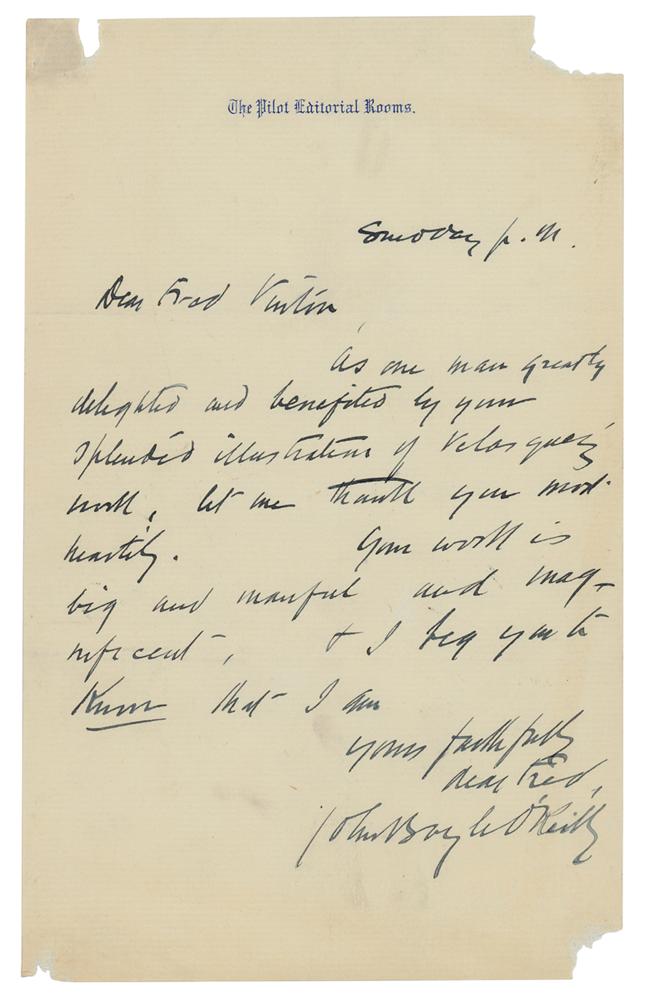 The Pilot Editorial Rooms.
Sunday p.M.
Dear Fred Vinton,
As one man greatly
delighted and benefited by your
splendid illustration of Velasquez's
work, let me thank you most
heartily. Your work is
big and manful and mag-
nificent, & I beg you to
Know that I am
yours faithfully
dear Fred,
John Boyle O'Reilly